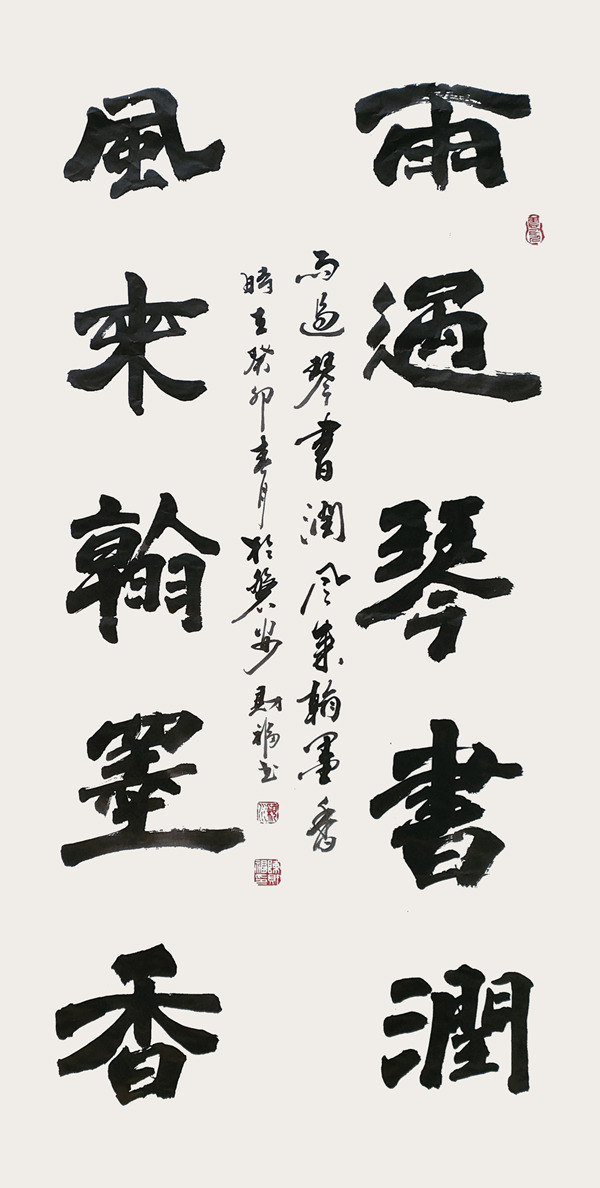 雨過琴書潤
風來翰墨香
雨過琴書潤風來翰墨香
時在癸卯春月於磐安財福書